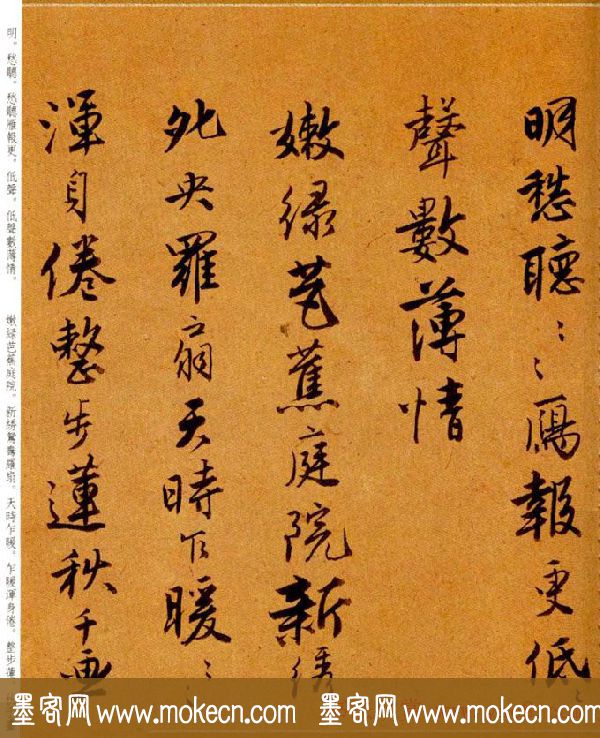 明愁聽〻〻鴈報更低〻
聲數薄情
嫩緑芭蕉庭院新綉
夗央羅扇天時乍暖〻〻
渾身倦整步蓮秋千画
明。愁聽。愁聽雁報更。低聲。低聲數薄情。 嫩緑芭蕉庭院。新綉鴛鴦羅扇。天時乍暖。乍暖渾身倦。整步蓮
墨客网 www.mokecn.com 墨客网 www.mokecn.com